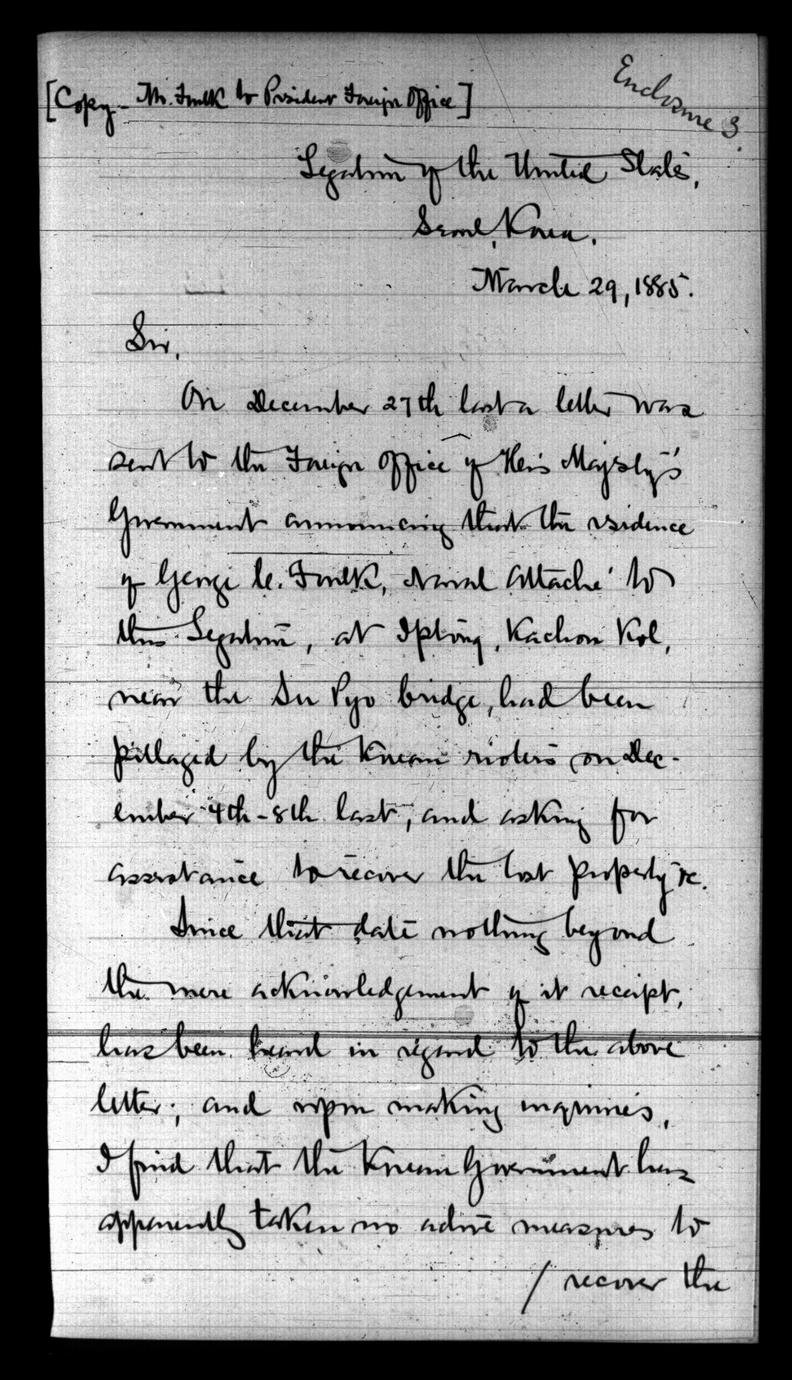 Enclosure 3.
[Copy - Mr. Foulk to President Foreign Office]
Legation of the United States,
Seoul, Korea.
March 29, 1885.
Sir,
On December 27th last a letter was
sent to the Foreign Office of His Majesty's
Government announcing that the residence
of George C. Foulk, Naval Attaché to
this Legation, at Iptong, Kachon Kol,
near the Su Pyo bridge, had been
pillaged by the Korean rioters on Dec-
ember 4th-8th last, and asking for
assistance to recover the lost property &c.
Since that date nothing beyond
the mere acknowledgement of it receipt,
has been heard in regard to the above
letter; and upon making inquiries,
I find that the Korean Government has
apparently taken no active measures to
/ recover the